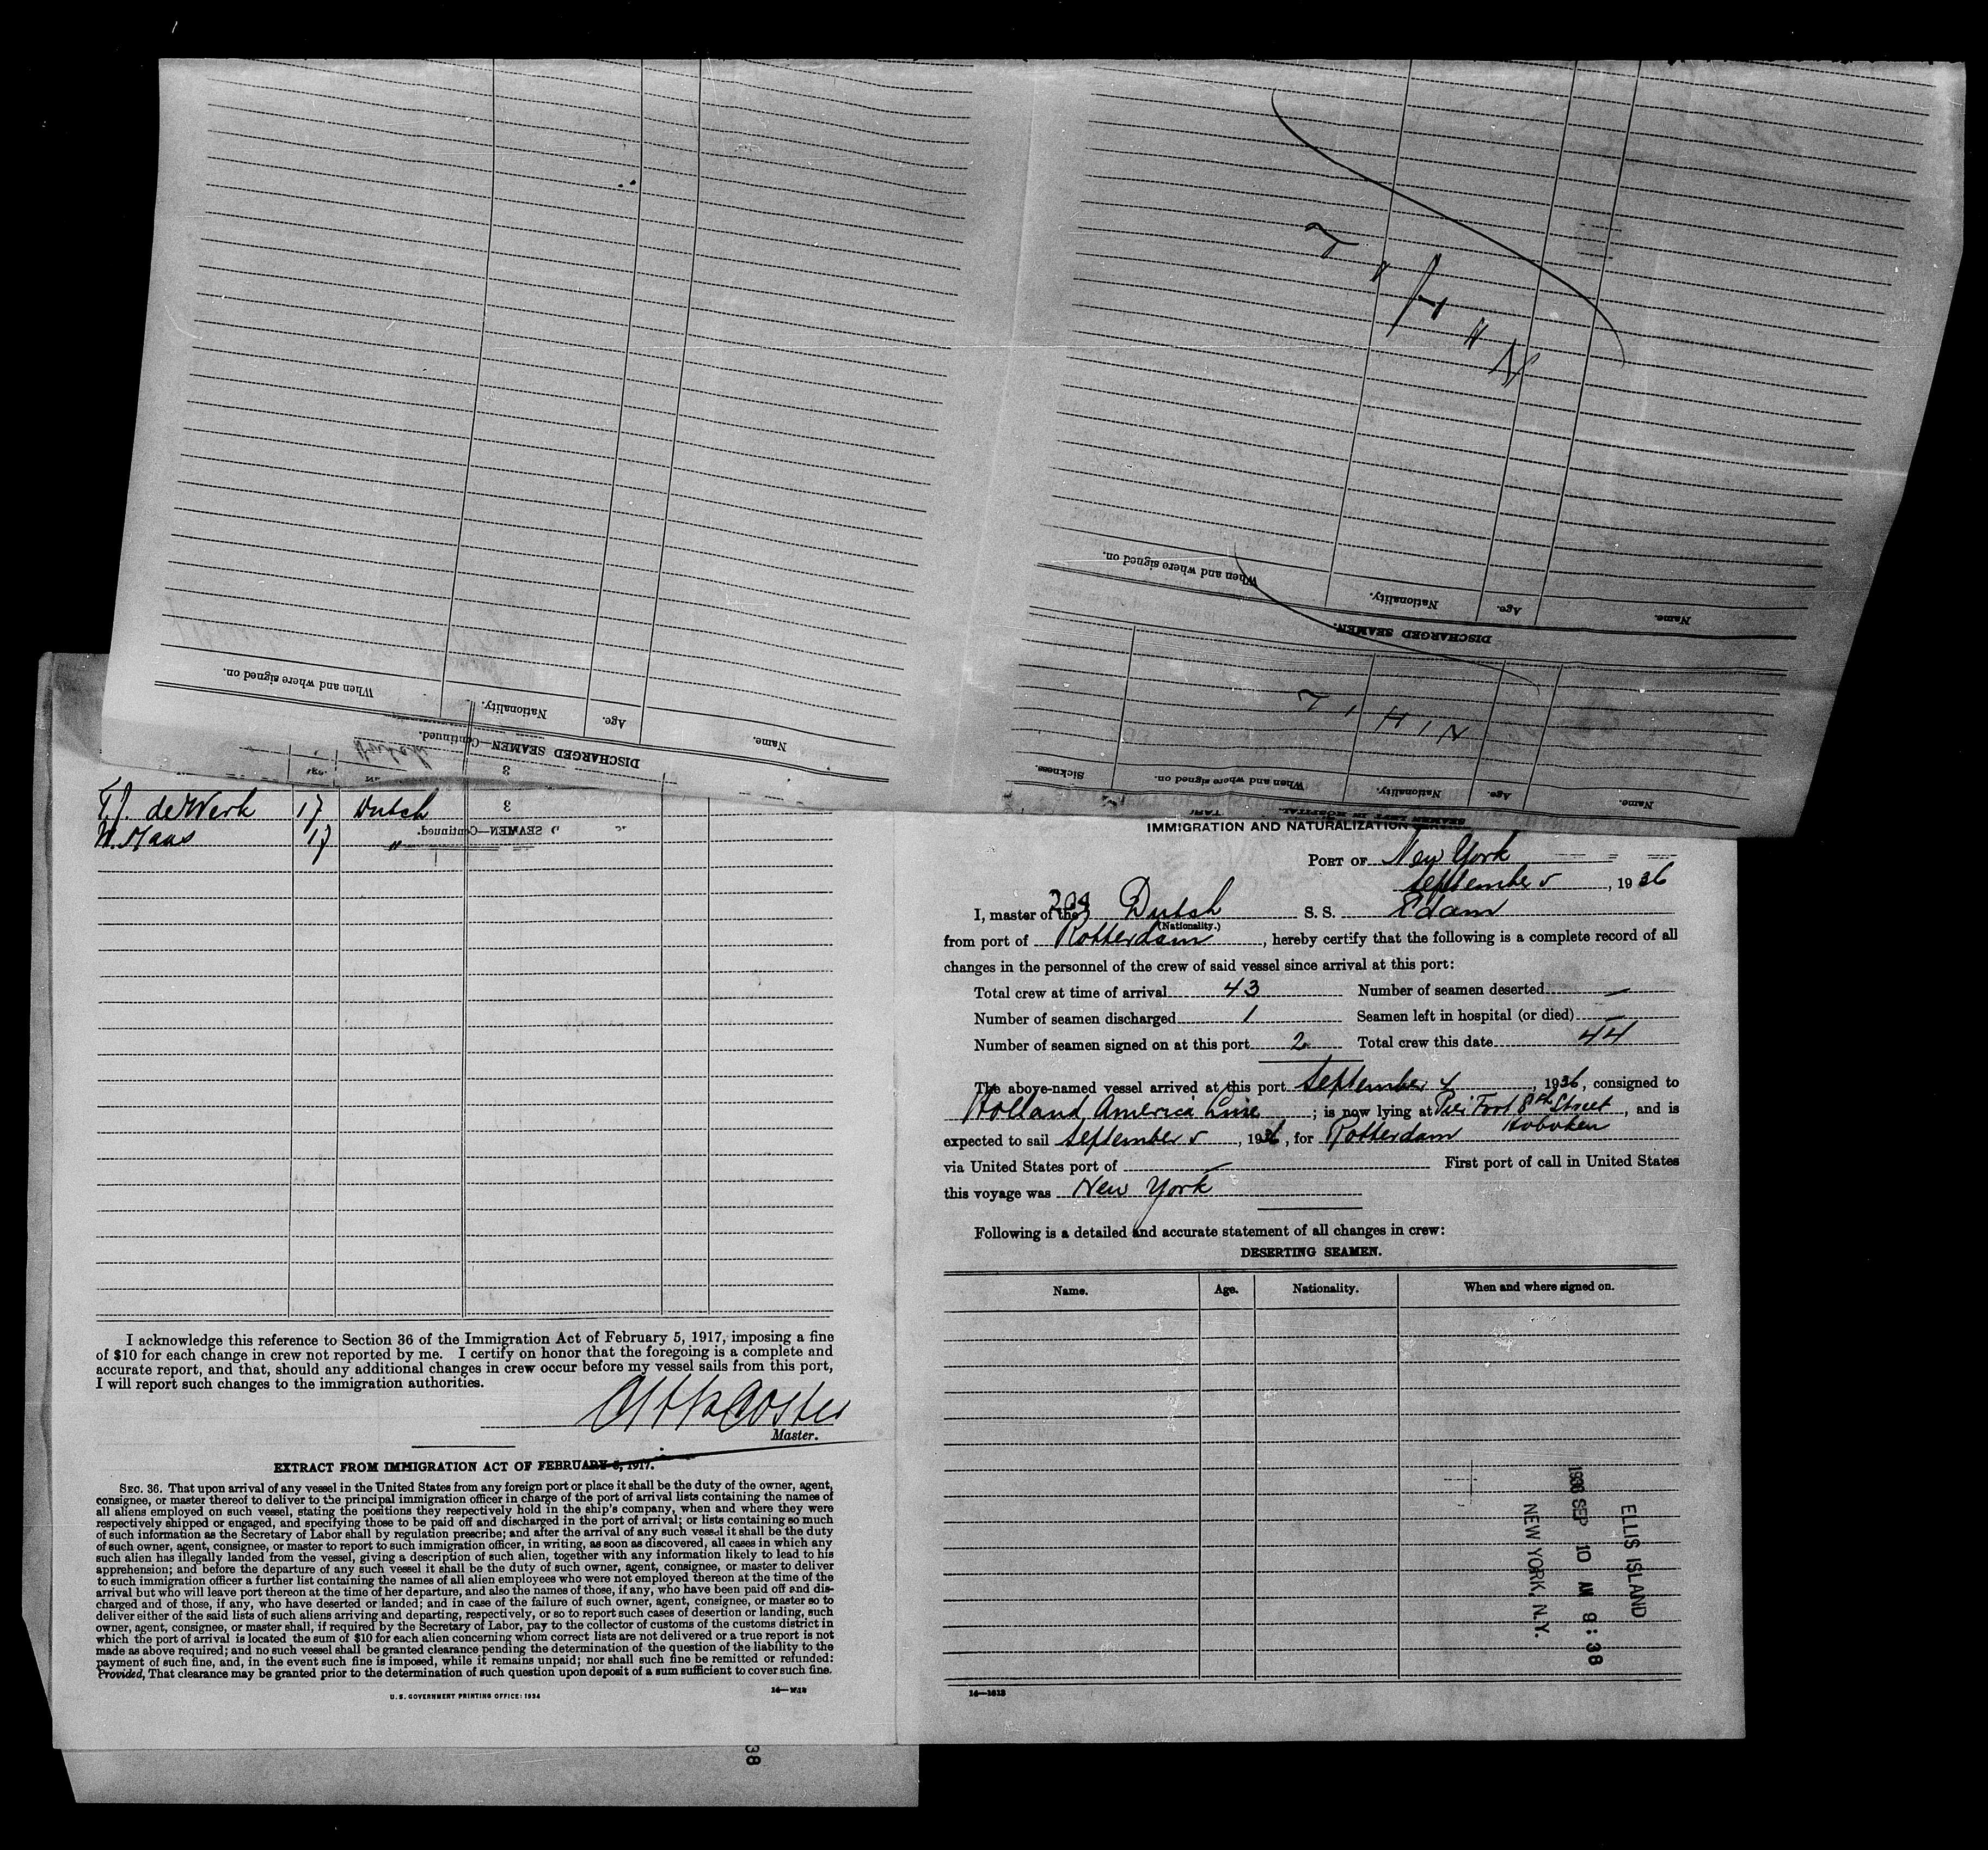 DISCHARGED SEAMEN—Continued.
Name.
Age.
Nationality.
When and where signed on.
SEAMEN LEFT IN HOSPITAL.
Name.
Age.
Nationality.
When and where signed on.
Sickness.
N I H I L
DISCHARGED SEAMEN.
Name.
Age.
Nationality.
When and where signed on.
N I H I L
3
3
SEAMEN—Continued.
T.J. de Werk 17 Dutch
W. Maas 17 "
I acknowledge this reference to Section 36 of the Immigration Act of February 5, 1917, imposing a fine
of $10 for each change in crew not reported by me. I certify on honor that the foregoing is a complete and
accurate report, and that, should any additional changes in crew occur before my vessel sails from this port,
I will report such changes to the immigration authorities.
Master.
EXTRACT FROM IMMIGRATION ACT OF FEBRUARY 5, 1917.
SEC. 36. That upon arrival of any vessel in the United States from any foreign port or place it shall be the duty of the owner, agent,
consignee, or master thereof to deliver to the principal immigration officer in charge of the port of arrival lists containing the names of
all aliens employed on such vessel, stating the positions they respectively hold in the ship's company, when and where they were
respectively shipped or engaged, and specifying those to be paid off and discharged in the port of arrival; or lists containing so much
of such information as the Secretary of Labor shall by regulation prescribe; and after the arrival of any such vessel it shall be the duty
of such owner, agent, consignee, or master to report to such immigration officer, in writing, as soon as discovered, all cases in which any
such alien has illegally landed from the vessel, giving a description of such alien, together with any information likely to lead to his
apprehension; and before the departure of any such vessel it shall be the duty of such owner, agent, consignee, or master to deliver
to such immigration officer a further list containing the names of all alien employees who were not employed thereon at the time of the
arrival but who will leave port thereon at the time of her departure, and also the names of those, if any, who have been paid off and dis-
charged and of those, if any, who have deserted or landed; and in case of the failure of such owner, agent, consignee, or master so to
deliver either of the said lists of such aliens arriving and departing, respectively, or so to report such cases of desertion or landing, such
owner, agent, consignee, or master shall, if required by the Secretary of Labor, pay to the collector of customs of the customs district in
which the port of arrival is located the sum of $10 for each alien concerning whom correct lists are not delivered or a true report is not
made as above required; and no such vessel shall be granted clearance pending the determination of the question of the liability to the
payment of such fine, and, in the event such fine is imposed, while it remains unpaid; nor shall such fine be remitted or refunded:
Provided, That clearance may be granted prior to the determination of such question upon deposit of a sum sufficient to cover such fine.
U. S. GOVERNMENT PRINTING OFFICE: 1934
38
IMMIGRATION AND NATURALIZATION
PORT OF New York
September 5, 1936
I, master of the Dutch S. S. Edam
(Nationality.)
from port of Rotterdam, hereby certify that the following is a complete record of all
changes in the personnel of the crew of said vessel since arrival at this port:
Total crew at time of arrival 43 Number of seamen deserted —
Number of seamen discharged 1 Seamen left in hospital (or died) —
Number of seamen signed on at this port 2 Total crew this date 44
The above-named vessel arrived at this port September 4, 1936, consigned to
Holland America Line; is now lying at Pier Foot 8th Street, and is
Hoboken
expected to sail September 5, 1936, for Rotterdam
via United States port of — First port of call in United States
this voyage was New York
Following is a detailed and accurate statement of all changes in crew:
DESERTING SEAMEN.
Name. Age. Nationality. When and where signed on.
ELLIS ISLAND
1936 SEP 10 AM 9:38
NEW YORK, N.Y.
14—1613